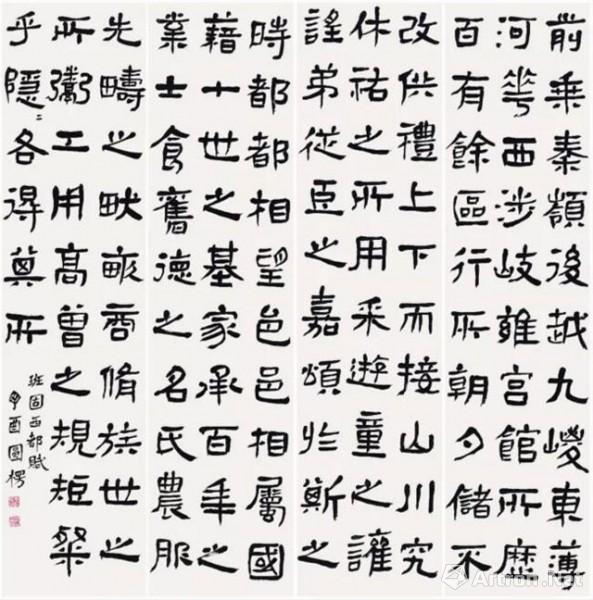 前乘秦嶺後越九嵕東薄
河華西涉岐雍宮館所歷
百有餘區行所朝夕儲不
改供禮上下而接山川究
休祐之所用采遊童之讙
謠弟從臣之嘉頌於斯之
時都都相望邑邑相屬國
藉十世之基家承百年之
業士食舊德之名氏農服
先疇之畎畝商脩族世之
所鬻工用高曾之規矩粲
乎隱〻各得其所
班固西都賦
辛酉
Artron.Net